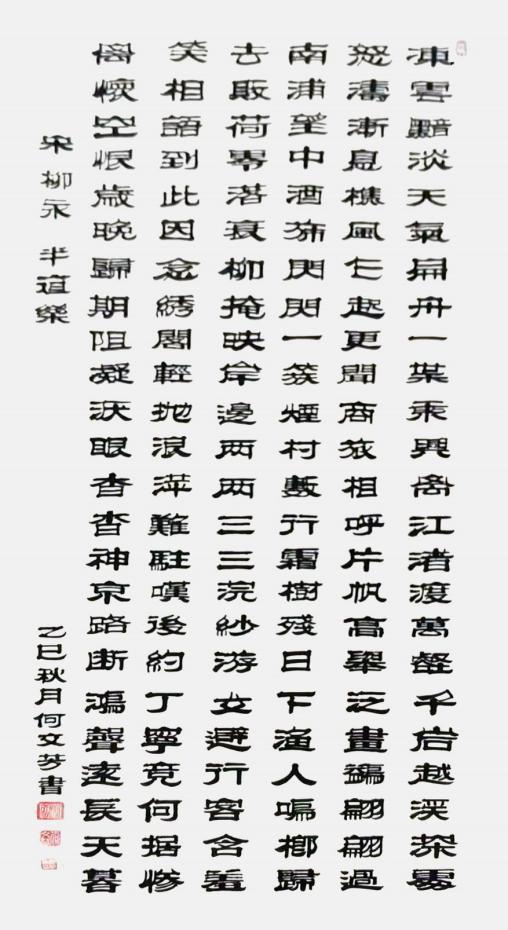 凍雲黯淡天氣扁舟一葉乘興离江渚渡萬壑千岩越溪深處
怒濤漸息樵風乍起更聞商旅相呼片帆高舉泛畫鷁翩翩過
南浦望中酒旆閃閃一簇煙村數行霜樹殘日下漁人鳴榔歸
去敗荷零落衰柳掩映岸邊两两三三浣紗游女避行客含羞
笑相語到此因念綉閣輕拋浪萍難駐嘆後約丁寧竟何据慘
离懷空恨歲晚歸期阻凝淚眼杳杳神京路断鴻聲遠長天暮
宋 柳永 半道樂
乙巳秋月何文芳書